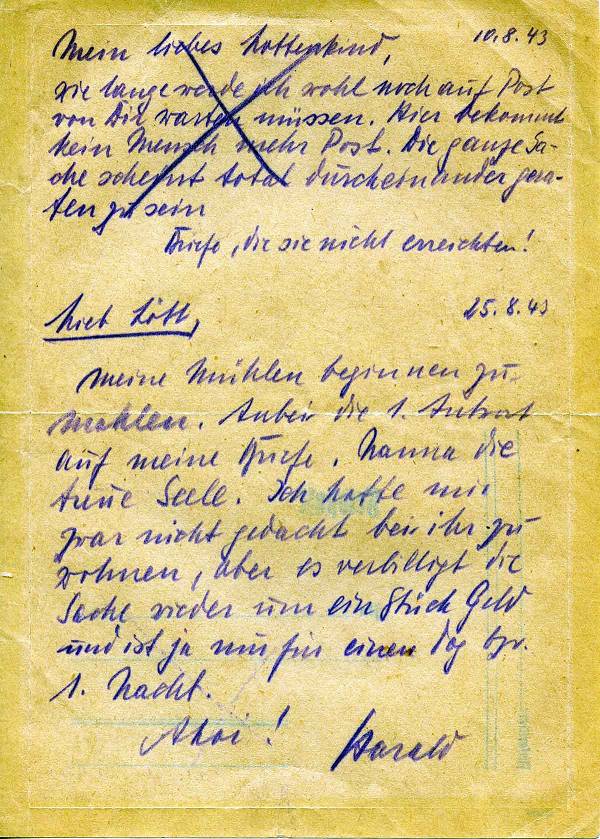 10.8.43
Mein liebes Lottenkind,
wie lange werde ich wohl noch auf Post
von Dir warten müssen. Hier bekommt
kein Mensch mehr Post. Die ganze Sa-
che scheint total durcheinander gera-
ten zu sein
Briefe, die sie nicht erreichten!
25.8.43
Lieb Lött,
meine Mühlen beginnen zu
mahlen. Anbei die 1. Antwort
auf meine Briefe. Nanna die
treue Seele. Ich hatte mir
zwar nicht gedacht bei ihr zu
wohnen, aber es verbilligt die
Sache wieder um ein Stück Geld
und ist ja nur für einen Tag bzw.
1. Nacht.
Ahoi!
Harald